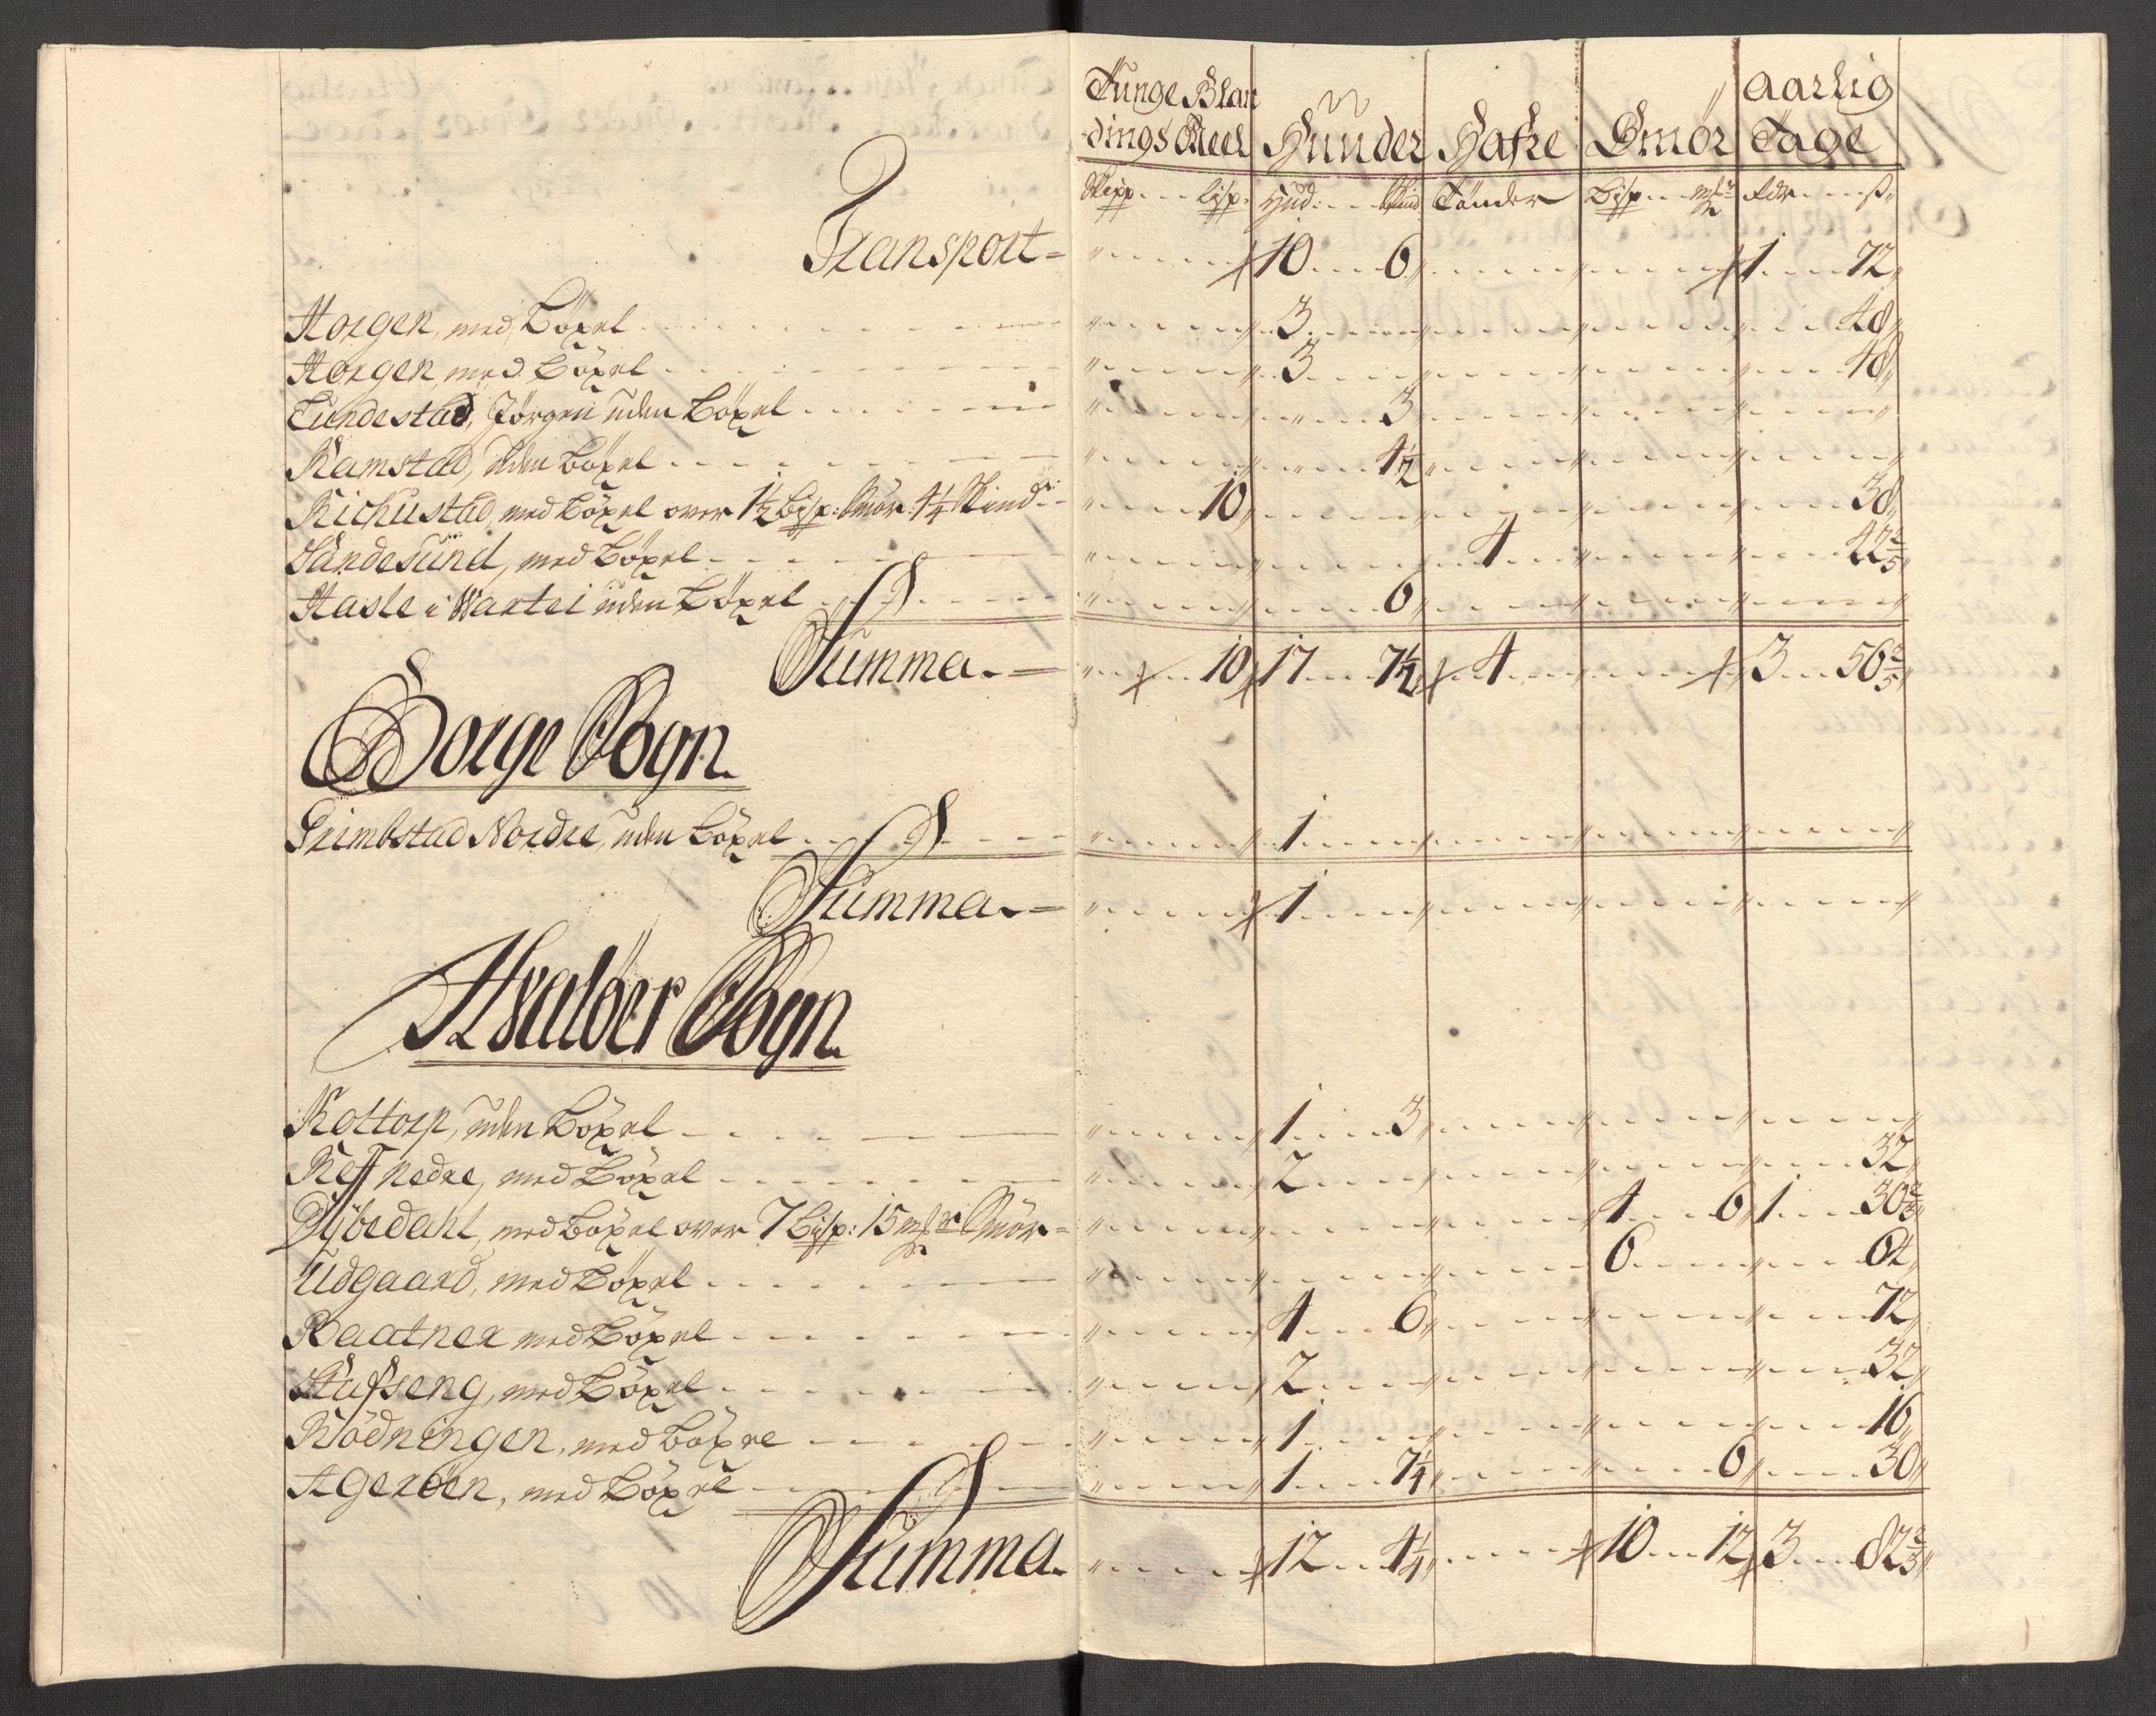 Tunge Blan
dings Meel Hünder Hafre Smör Aarlig Tage
Skipp. Lisp. Hud: Skind Tönder Bisp mk Rdr ß
Transport = 10 6 1 72
Horgen, med Böxel 3 48
Horgen med Böxel 3 48
Tundestad, Jörgen uden Böxel 3
Ramstad, uden Böxel 1½
Kichustad, med Böxel over 1½ Bisp: Smör 4¼ Skind 10 38
Sandesünd, med Böxel 4 42 2/5
Hasle i Wartei uden Böxel 6
Summa. = 10 17 7½ 4 3 56 2/5
Borge Sogn.
Grimbstad Nordre, uden Böxel 1
Summa. = 1
Hvalöer Sogn.
Rottorp, uden Böxel 1 3
Reff nedre, med Böxel 2 32
Dybedahl, med Böxel over 7 Bisp: 15 mk Smör = 4 6 1 30 2/3
Udgaard, med Böxel 6 64
Baatnex med Böxel 4 6 72
Hufseng, med Böxel 2 32
Rödningen, med Böxel 1 16
Ageröen, med Böxel 1 7¼ 6 30
Summa. 12 4¼ 10 12 3 82 2/3